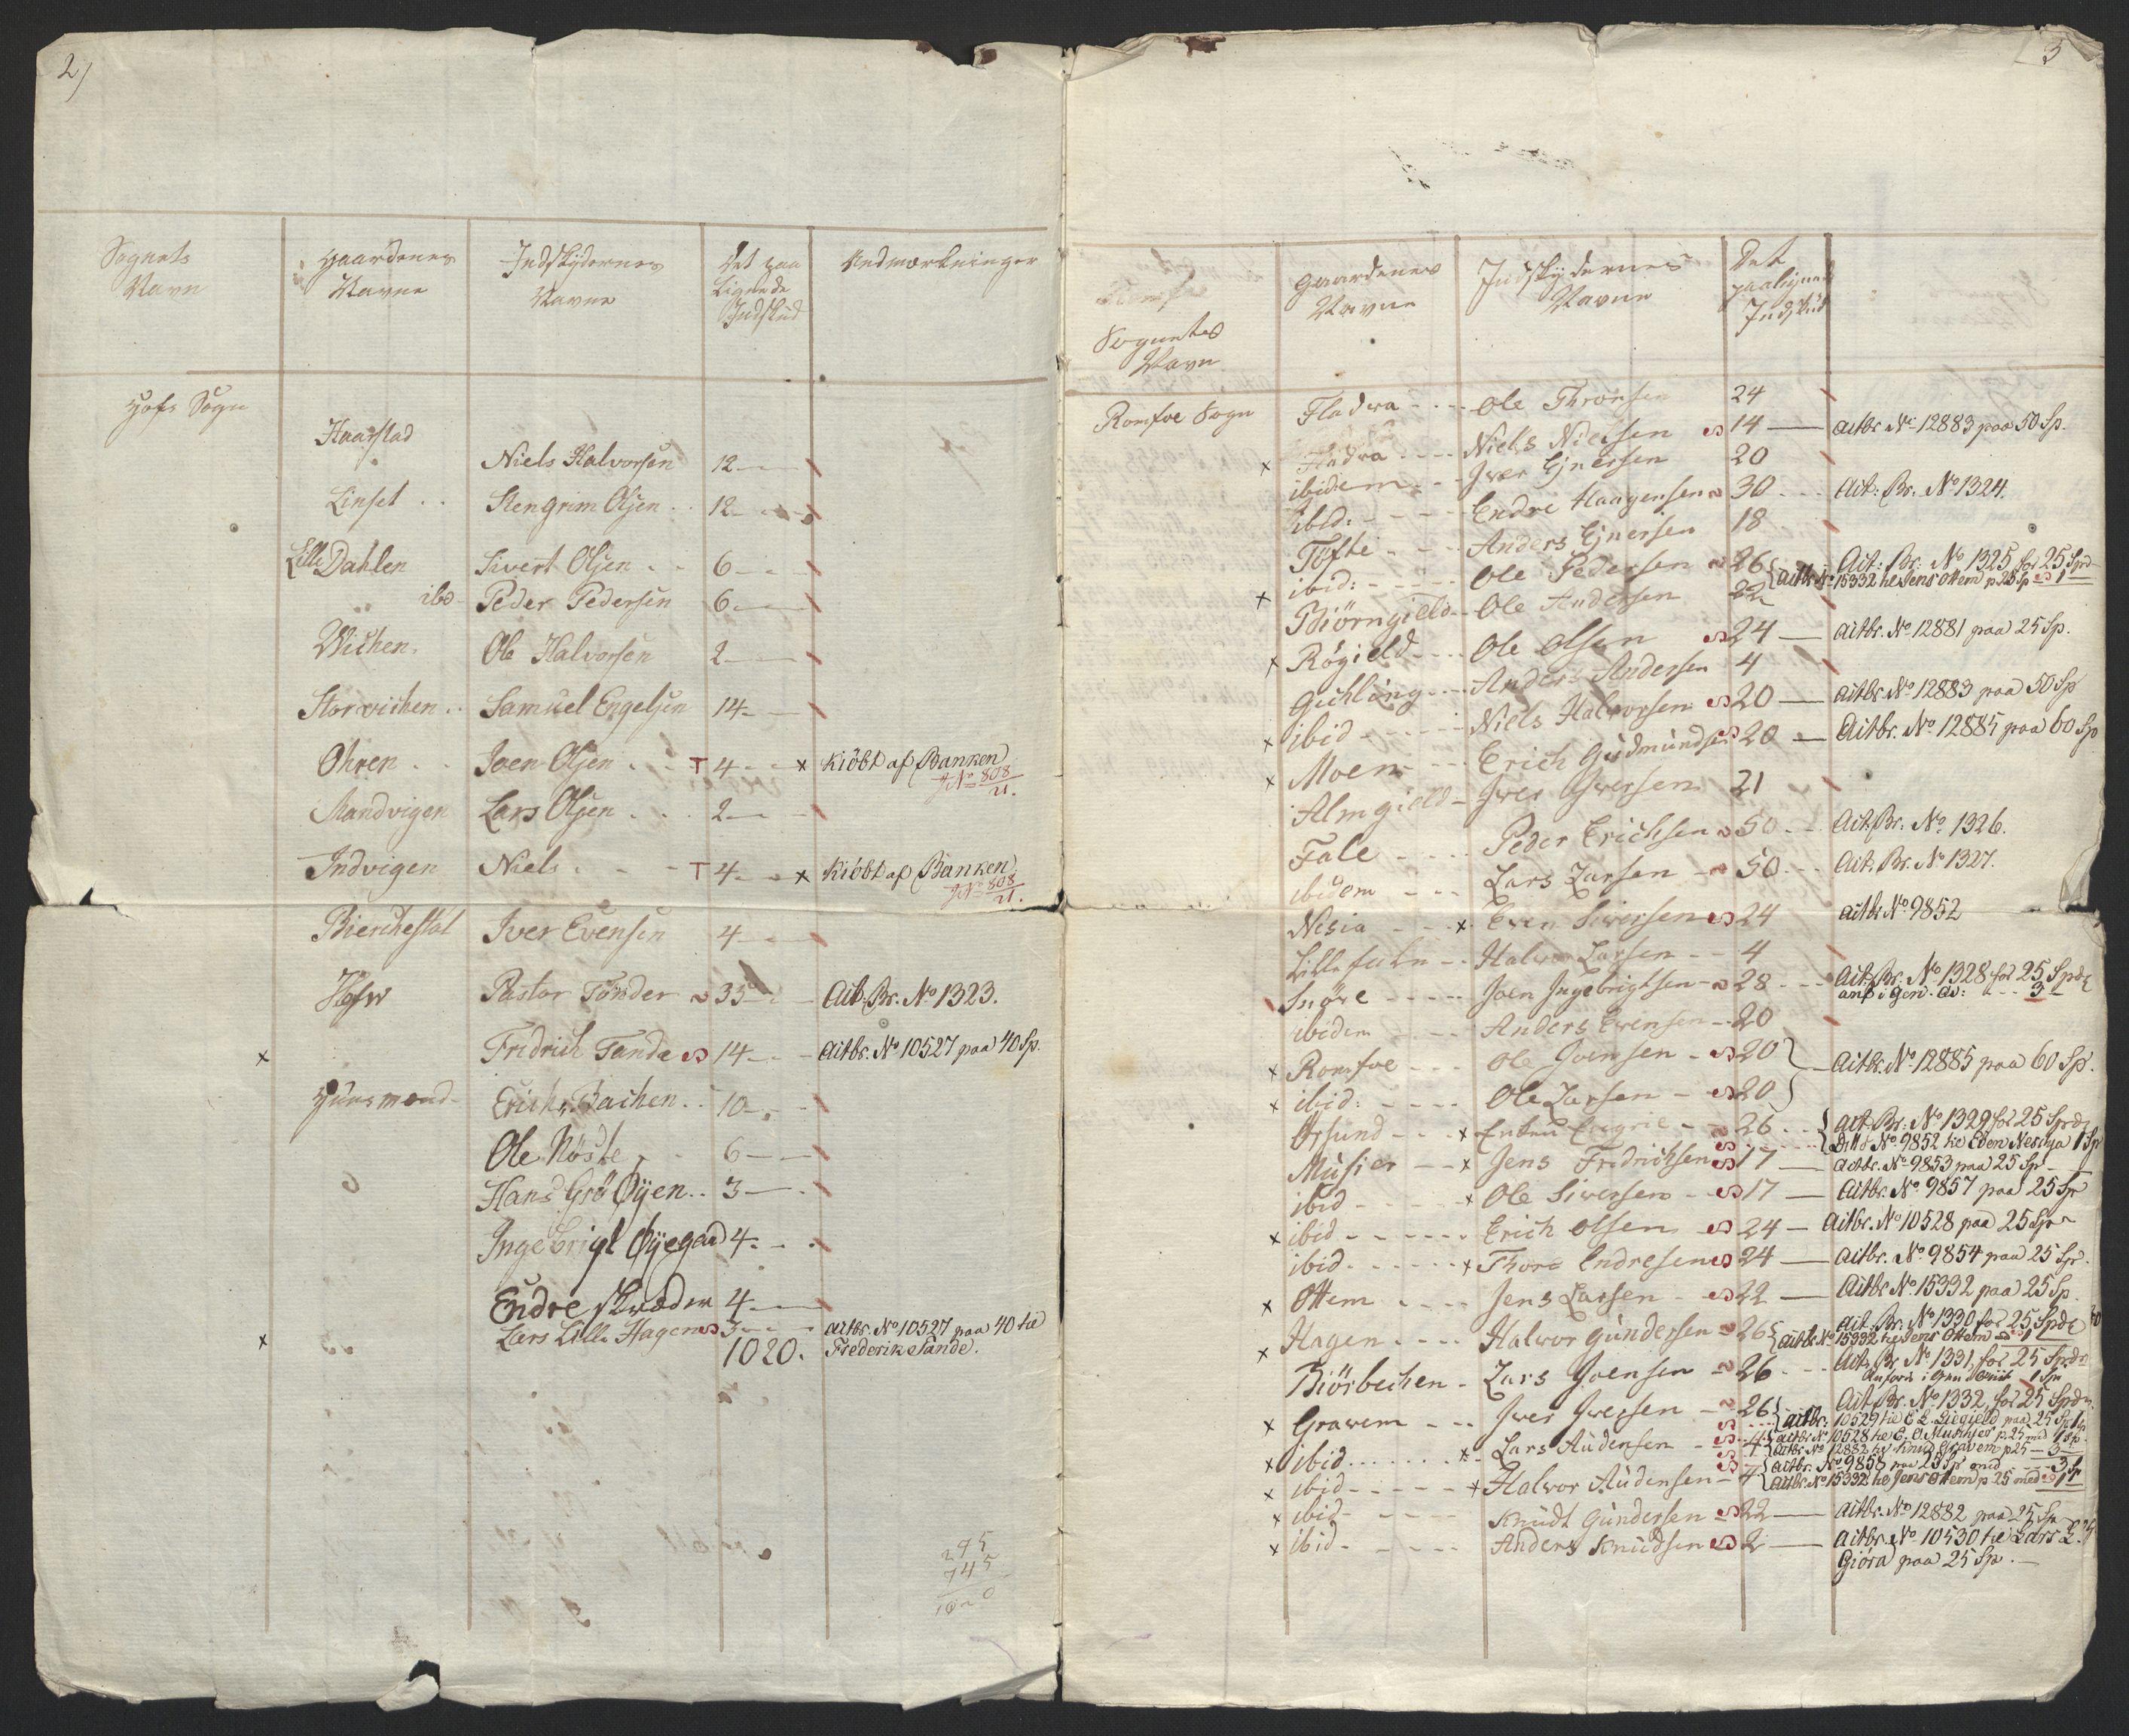 2)
Sognets Navn | Gaardenes Navne | Indskydernes Navne | Det paa Lignede Indskud | Anmærkninger
Hofs Sogn
Haarstad
Niels Halvorsen 12
Linset . . Stengrim Olsen . . 12
Lille Dahlen Sivert Olsen . . 6
ibd Peder Pedersen 6
Wichen. Ole Halvorsen 2
Storvichen . . Samuel Engelsen 14
Ohren . . Joen Olsen . . T 4 x Kiöbt af Banken
No 808
21.
Sandvigen Lars Olsen . . . 2
Indvigen Niels . . . T 4 x Kiöbt af Banken
No 808
21.
Bierchestøl Iver Evensen 4
Hofw Pastor Tønder 35 Ait. Br. No 1323.
x Fridrich Tande 14 Aitbr. No 10527 paa 40 Sp.
Huusmænd Erich Bachen . . 10
Ole Nöste 6
Hans Grö Øyen . . 3
Ingebrigt Øyegaard 4
Endre Skræder 4
x Lars Lille Hagen 3 Aitbr. No 10527 paa 40 til
1020. Frederik Tande.
295
745
3
Sognets Navn | Gaardenes Navne | Indskydernes Navne | Det paalignede Indskud
Romfoe Sogn Fladvra Ole Thronsen 24
x Fladvra Niels Nielsen 14 Aitbr. No 12883 paa 50 Sp.
ibidem Iver Ejnersen 20
ibid: Endre Haagensen 30 Ait: Br. No 1324.
Tofte Anders Ejnersen 18
x ibid: Ole Pedersen 26 { Ait: Br: No 1325 for 25 Spd
Aitbr. No 15332 til Jens Ottem p. 25 Sp 1
Biörngield Ole Andersen 22
x Rögield Ole Olsen 24 Aitbr. No 12881 paa 25 Sp.
Gichling Anders Andersen 4
x ibid Niels Halvorsen 20 Aitbr. No 12883 paa 50 Sp
x Moen Erich Gudmundsen 20 Aitbr. No 12885 paa 60 Sp
Almgield Iver Iversen 21
Fale Peder Erichsen 50 Ait. Br. No 1326.
ibidem Lars Larsen 50 Ait. Br. No 1327.
Nisia x Even Siversen 24 Aitbr No 9852
Lille Halvor Larsen 4
Snöve Joen Ingebrigtsen 28 Ait. Br. No 1328 for 25 Spd
anf i Gen. 3
ibidem Anders Evensen 20
x Romfoe Ole Joensen 20 }
x ibid: Ole Larsen 20 } Aitbr. No 12885 paa 60 Sp.
Orsund x Enken 26 { Ait. Br. No 1329 for 25 Spd
Ditto No 9852 til Eden Nesdya 1 Sp
Musier x Jens Fridrichsen 17 Aitbr. No 9853 paa 25 Sp
ibid x Ole Siversen 17 Aitbr. No 9857 paa 25 Sp
x ibid Erich Olsen 24 Aitbr. No 10528 paa 25 Sp
ibid x Thore Endresen 24 Aitbr. No 9854 paa 25 Sp.
x Ottem Jens Larsen 22 Aitbr No 15332 paa 25 Sp.
x Hagen Halvor Gundersen 26 { Ait. Br. No 1330 for 25 Spd
Aitbr. No 15332 til Jens Ottem 1
Biörbechen Lars Joensen 26 Ait. Br No 1331, for 25 Spd
Anförd i Gen 1 Sp
x Gravem Iver Iversen 26 { Ait. Br. No 1332, for 25 Spd
Aitbr: 10529 til E L paa 25 Sp
x ibid x Lars Audensen 4 { Aitbr No 10528 til E. O. Musier p 25 med 1 Sp.
Aitbr No 12882 til Knud Gravem p 25 3
x ibid x Halvor Audensen 4 { Aitbr. No 9858 paa 25 Sp med 3 Sp
Aitbr. No 15332 til Jens Ottem p 25 med 1 Sp
x ibid Knudt Gundersen 22 Aitbr. No 12882 paa 25 Sp
x ibid Anders Knudsen 2 Aitbr. No 10530 til Lars L.
Giöra paa 25 Sp.